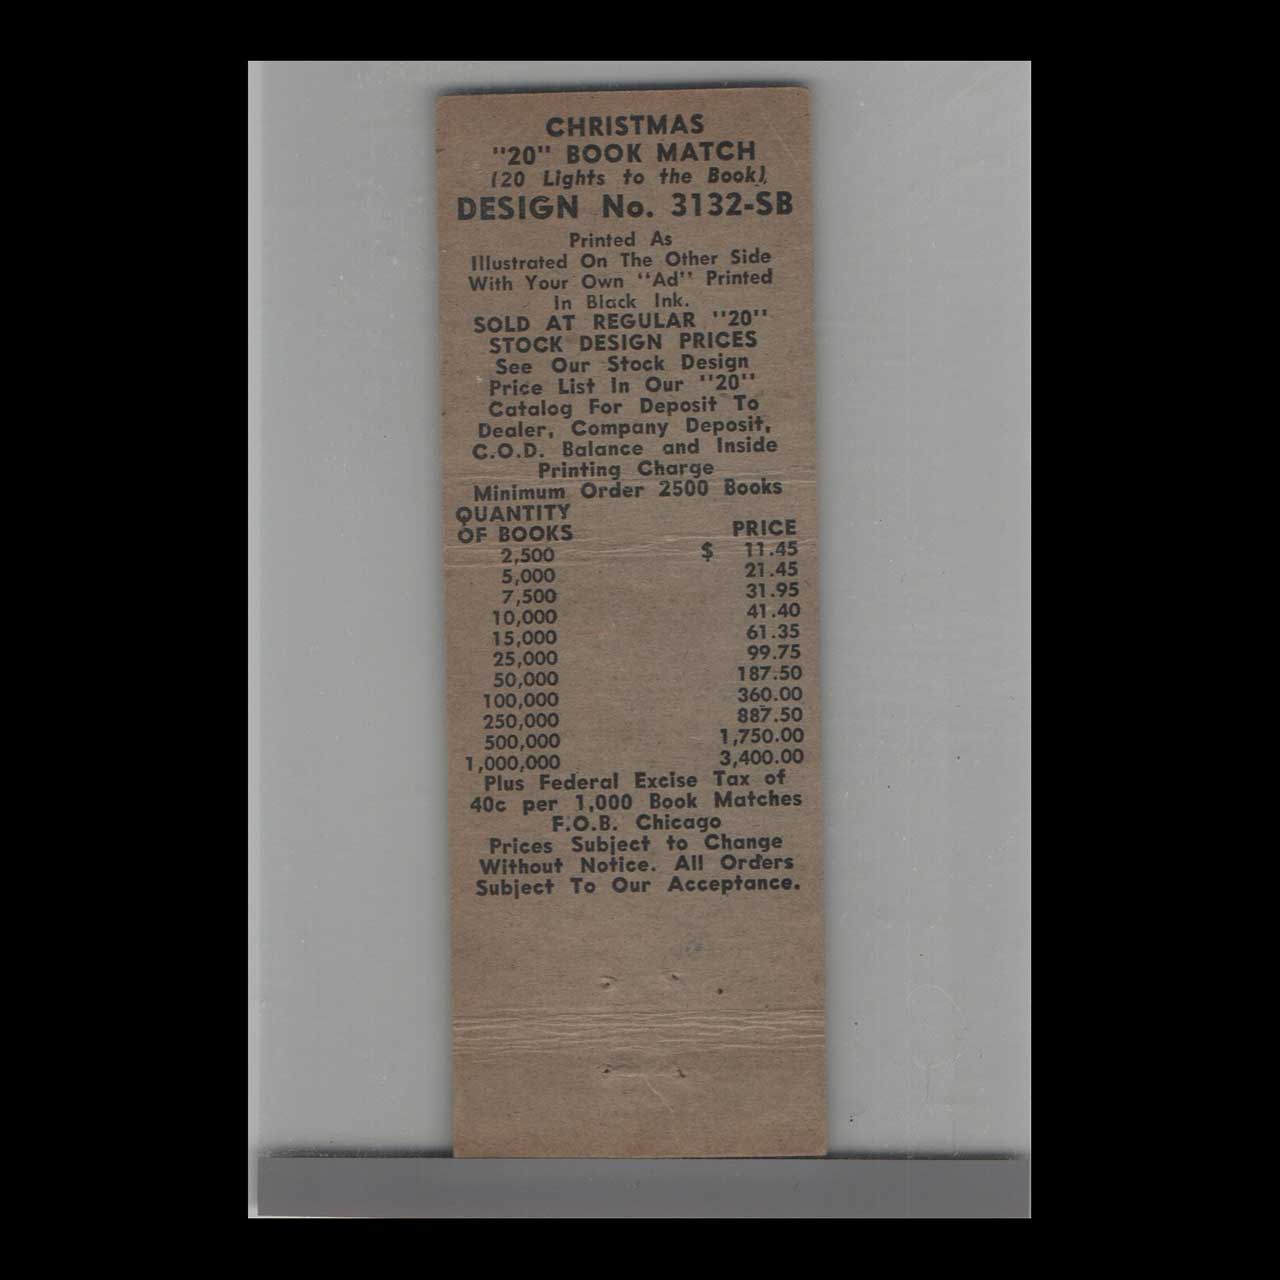 CHRISTMAS
"20" BOOK MATCH
(20 Lights to the Book)
DESIGN No. 3132-SB
Printed As
Illustrated On The Other Side
With Your Own "Ad" Printed
In Black Ink.
SOLD AT REGULAR "20"
STOCK DESIGN PRICES
See Our Stock Design
Price List In Our "20"
Catalog For Deposit To
Dealer, Company Deposit,
C.O.D. Balance and Inside
Printing Charge
Minimum Order 2500 Books
QUANTITY
OF BOOKS PRICE
2,500 $ 11.45
5,000 21.45
7,500 31.95
10,000 41.40
15,000 61.35
25,000 99.75
50,000 187.50
100,000 360.00
250,000 887.50
500,000 1,750.00
1,000,000 3,400.00
Plus Federal Excise Tax of
40c per 1,000 Book Matches
F.O.B. Chicago
Prices Subject to Change
Without Notice. All Orders
Subject To Our Acceptance.